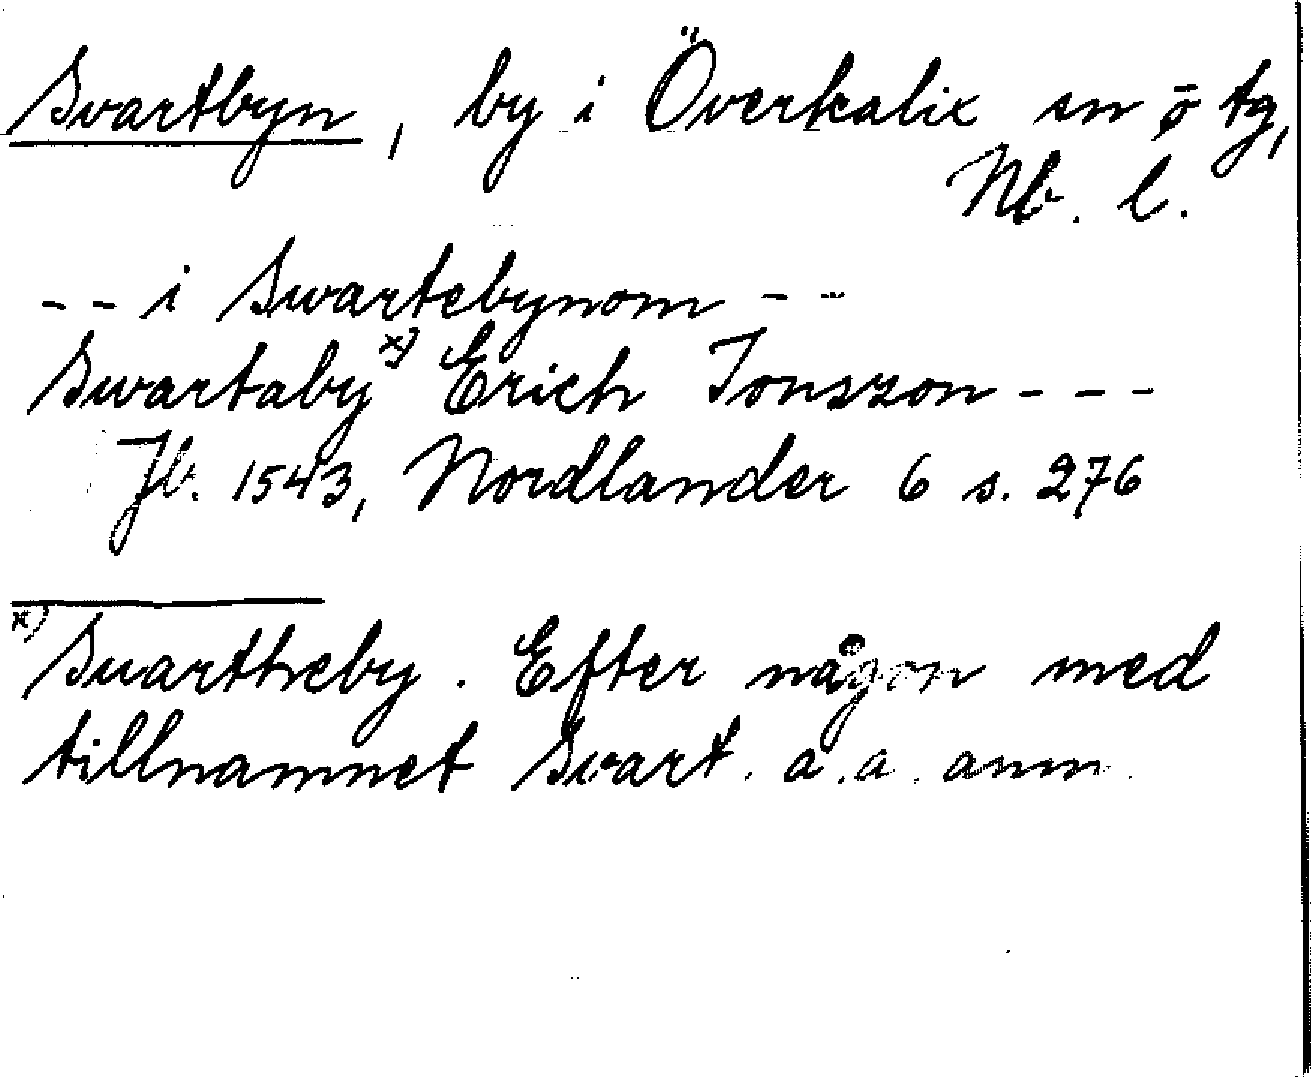 Svartbyn, by i Överkalix sn ö tg,
Nb. l.
-- i Swartebynom --
Swartaby x) Erich Jonszon ---
Jb. 1543, Nordlander 6 s. 276
x) Suartheby. Efter någon med
tillnamnet Svart. a. a. anm.